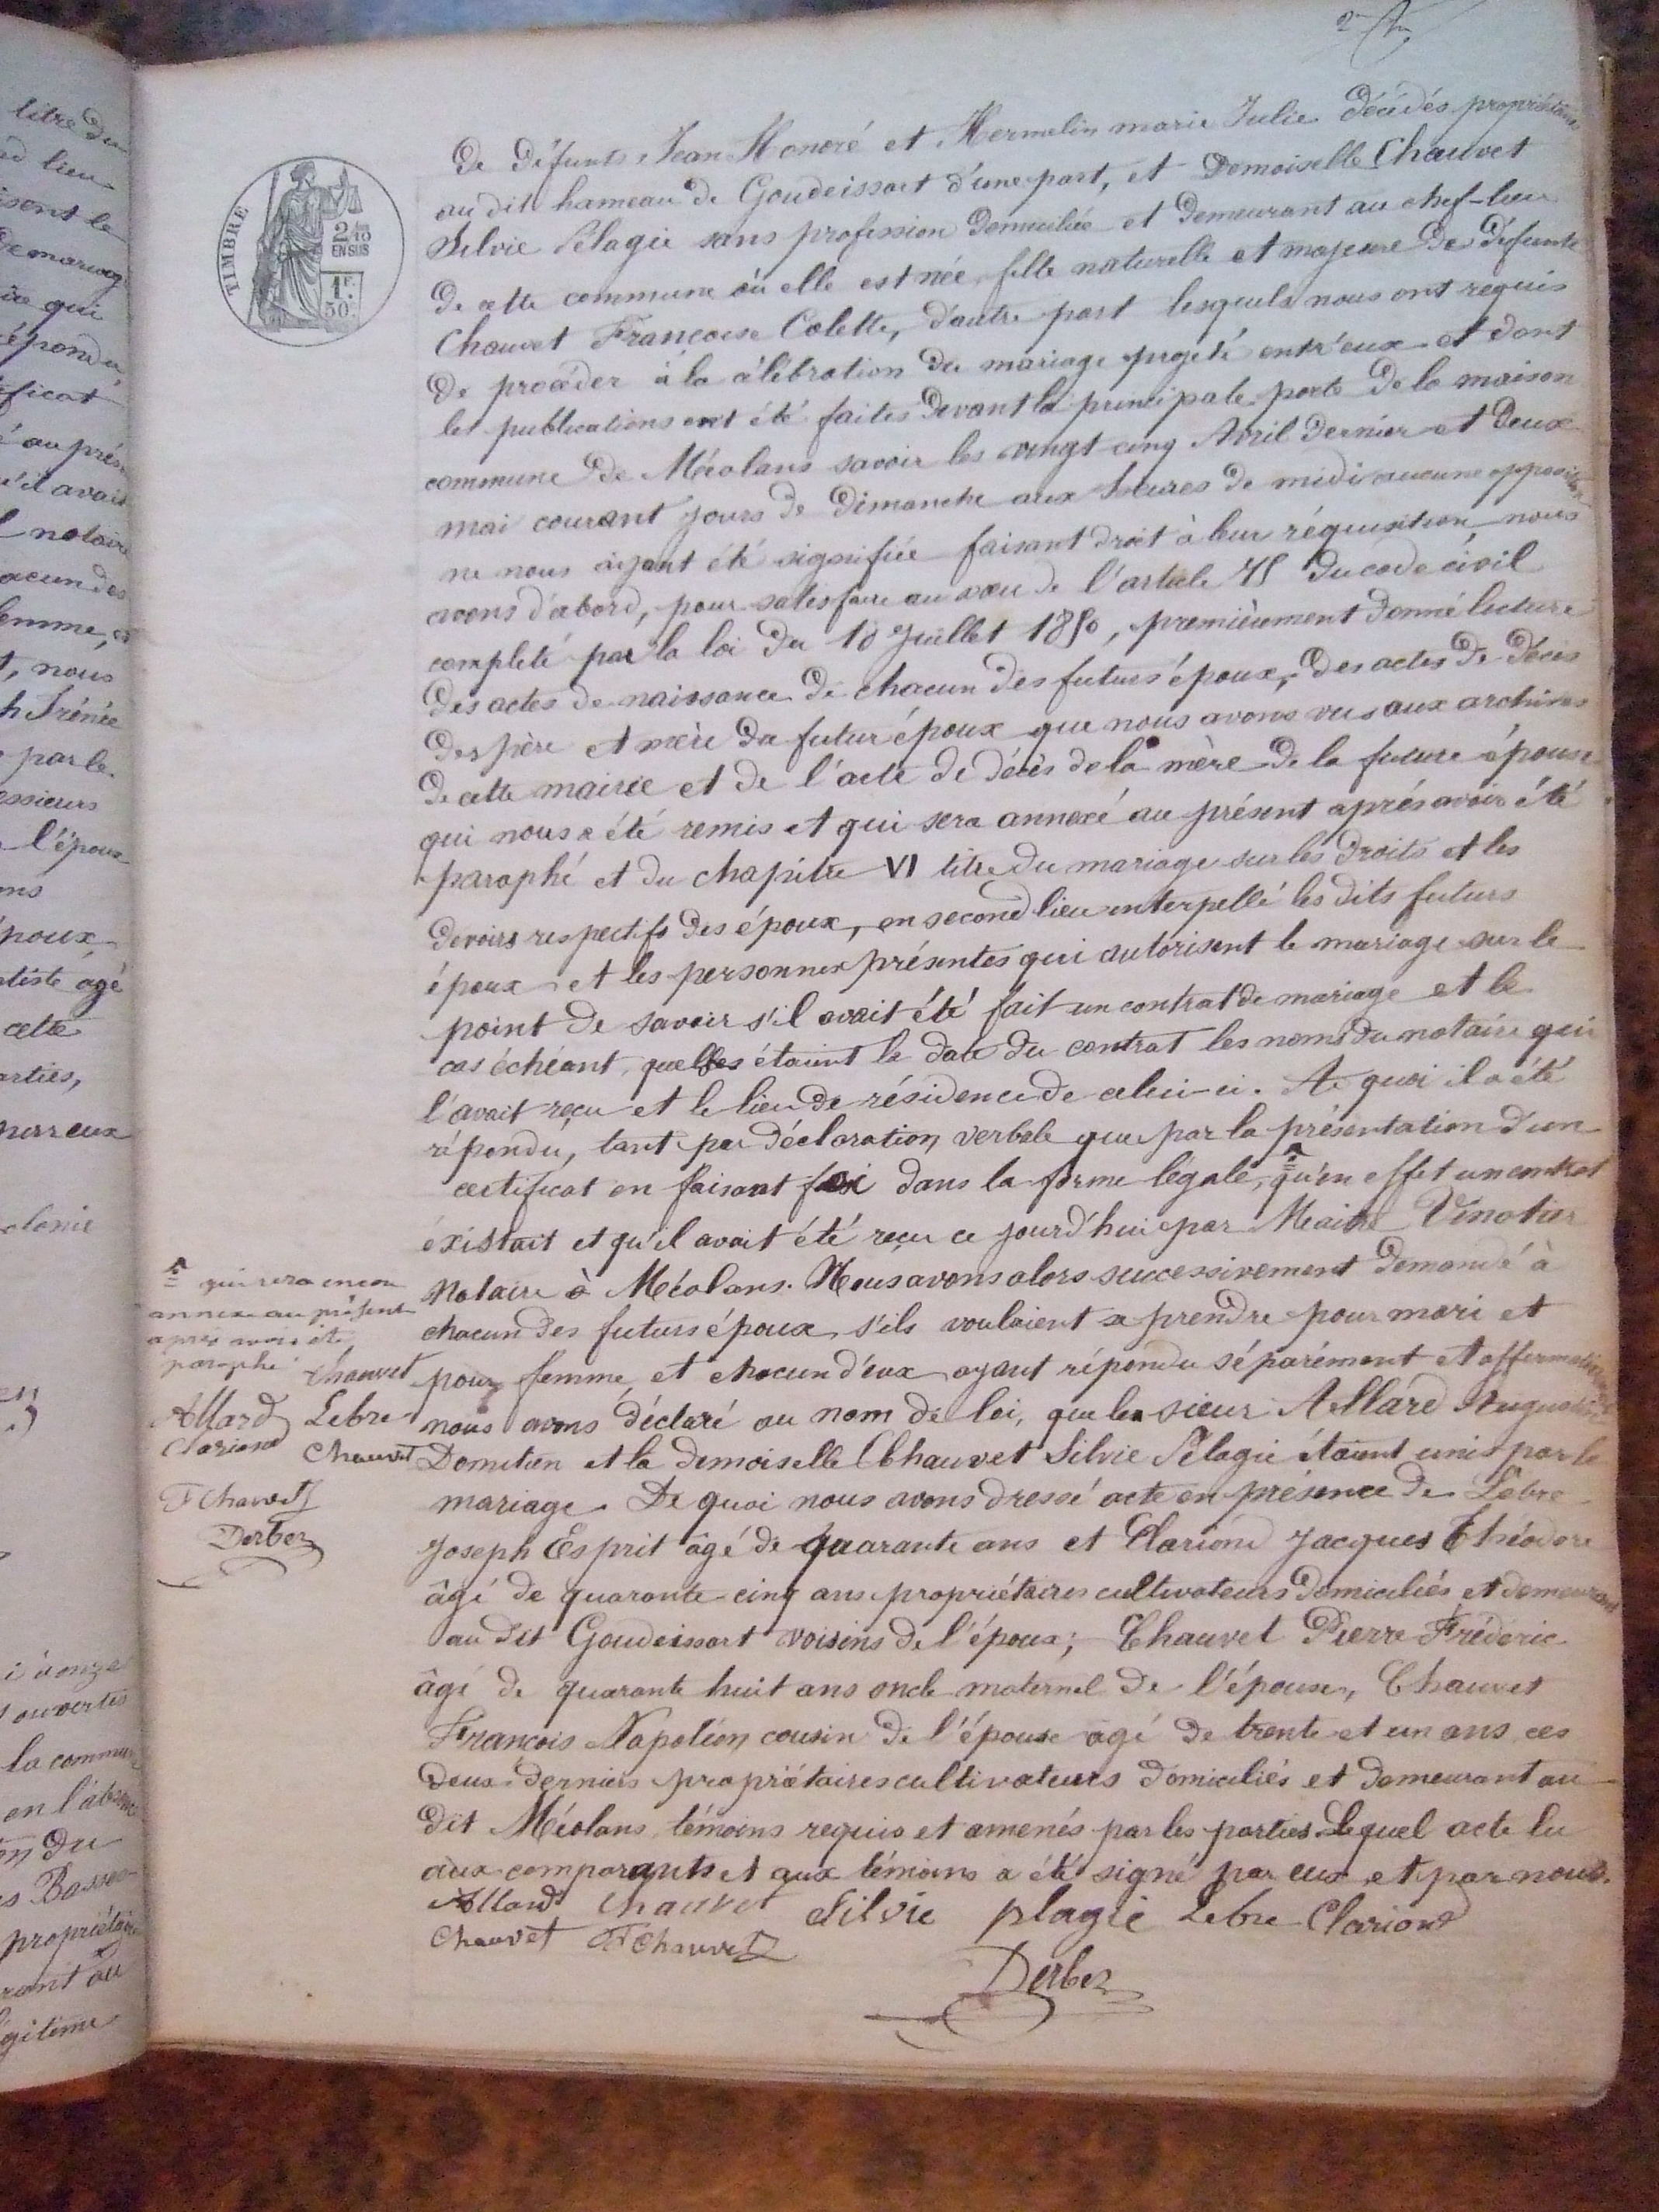 TIMBRE
2/10
EN SUS
1F.
50c.
De défunts Jean Honoré et Hermelin marie Julie décédés propriétaires
au dit hameau de Goudeissart d'une part, et Demoiselle Chauvet
Silvie Pélagie sans profession domiciliée et demeurant au chef-lieu
de cette commune où elle est née, fille naturelle et majeure de défunte
Chauvet Françoise Colette, d'autre part lesquels nous ont requis
de procéder à la célébration du mariage projeté entr'eux et dont
les publications ont été faites devant la principale porte de la maison
commune de Méolans savoir les vingt-cinq Avril dernier et deux
mai courant jours de dimanche aux heures de midi aucune opposition
ne nous ayant été signifiée faisant droit à leur réquisition, nous
avons d'abord, pour satisfaire au vœu de l'article 75 du code civil
complété par la loi du 10 Juillet 1850, premièrement donné lecture
des actes de naissance de chacun des futurs époux, des actes de décès
des père et mère du futur époux que nous avons vus aux archives
de cette mairie et de l'acte de décès de la mère de la future épouse
qui nous a été remis et qui sera annexé au présent après avoir été
paraphé et du chapitre VI titre du mariage sur les droits et les
devoirs respectifs des époux, en second lieu interpellé les dits futurs
époux et les personnes présentes qui autorisent le mariage sur le
point de savoir s'il avait été fait un contrat de mariage et le
cas échéant, quelles étaient la date du contrat les noms du notaire qui
l'avait reçu et le lieu de résidence de celui-ci. A quoi il a été
répondu, tant par déclaration verbale que par la présentation d'un
certificat en faisant foi dans la forme légale, qu'en effet un contrat
éxistait et qu'il avait été reçu ce jourd'hui par Maitre Vinatier
Notaire à Méolans. Nous avons alors successivement demandé à
chacun des futurs époux s'ils voulaient se prendre pour mari et
pour femme, et chacun d'eux ayant répondu séparément et affirmativement
nous avons déclaré au nom de loi, que le sieur Allard Augustin
Domitien et la demoiselle Chauvet Silvie Pélagie étaient unis par le
mariage. De quoi nous avons dressé acte en présence de Lèbre
Joseph Esprit âgé de quarante ans et Clariond Jacques Théodore
âgé de quarante-cinq ans propriétaires cultivateurs domiciliés et demeurant
au dit Goudeissart voisins de l'époux; Chauvet Pierre Fréderic
âgé de quarante huit ans oncle maternel de l'épouse, Chauvet
François Napoléon cousin de l'épouse âgé de trente et un ans, ces
deux derniers propriétaires cultivateurs domiciliés et demeurant au
dit Méolans témoins requis et amenés par les parties. Lequel acte lu
aux comparants et aux témoins a été signé par eux et par nous.
Allard Chauvet Silvie plagie Lebre Clariond
Chauvet F Chauvet
Derbez
qui sera encore
annexé au présent
après avoir été
paraphé. Chauvet
Allard Lebre
Clariond Chauvet
F Chauvet
Derbez
titre du
lieu
isent le
de mariag
qui
épondu,
ificat
é au prés
u'il avait
notaire
acun des
emme, et
t, nous
h Irénée
par le
essieurs
l'époux
ns
époux
tiste agé
cette
arties,
ouvertes
la commun
en l'absence
du
s Basses
propriétaire
rant au
égitime